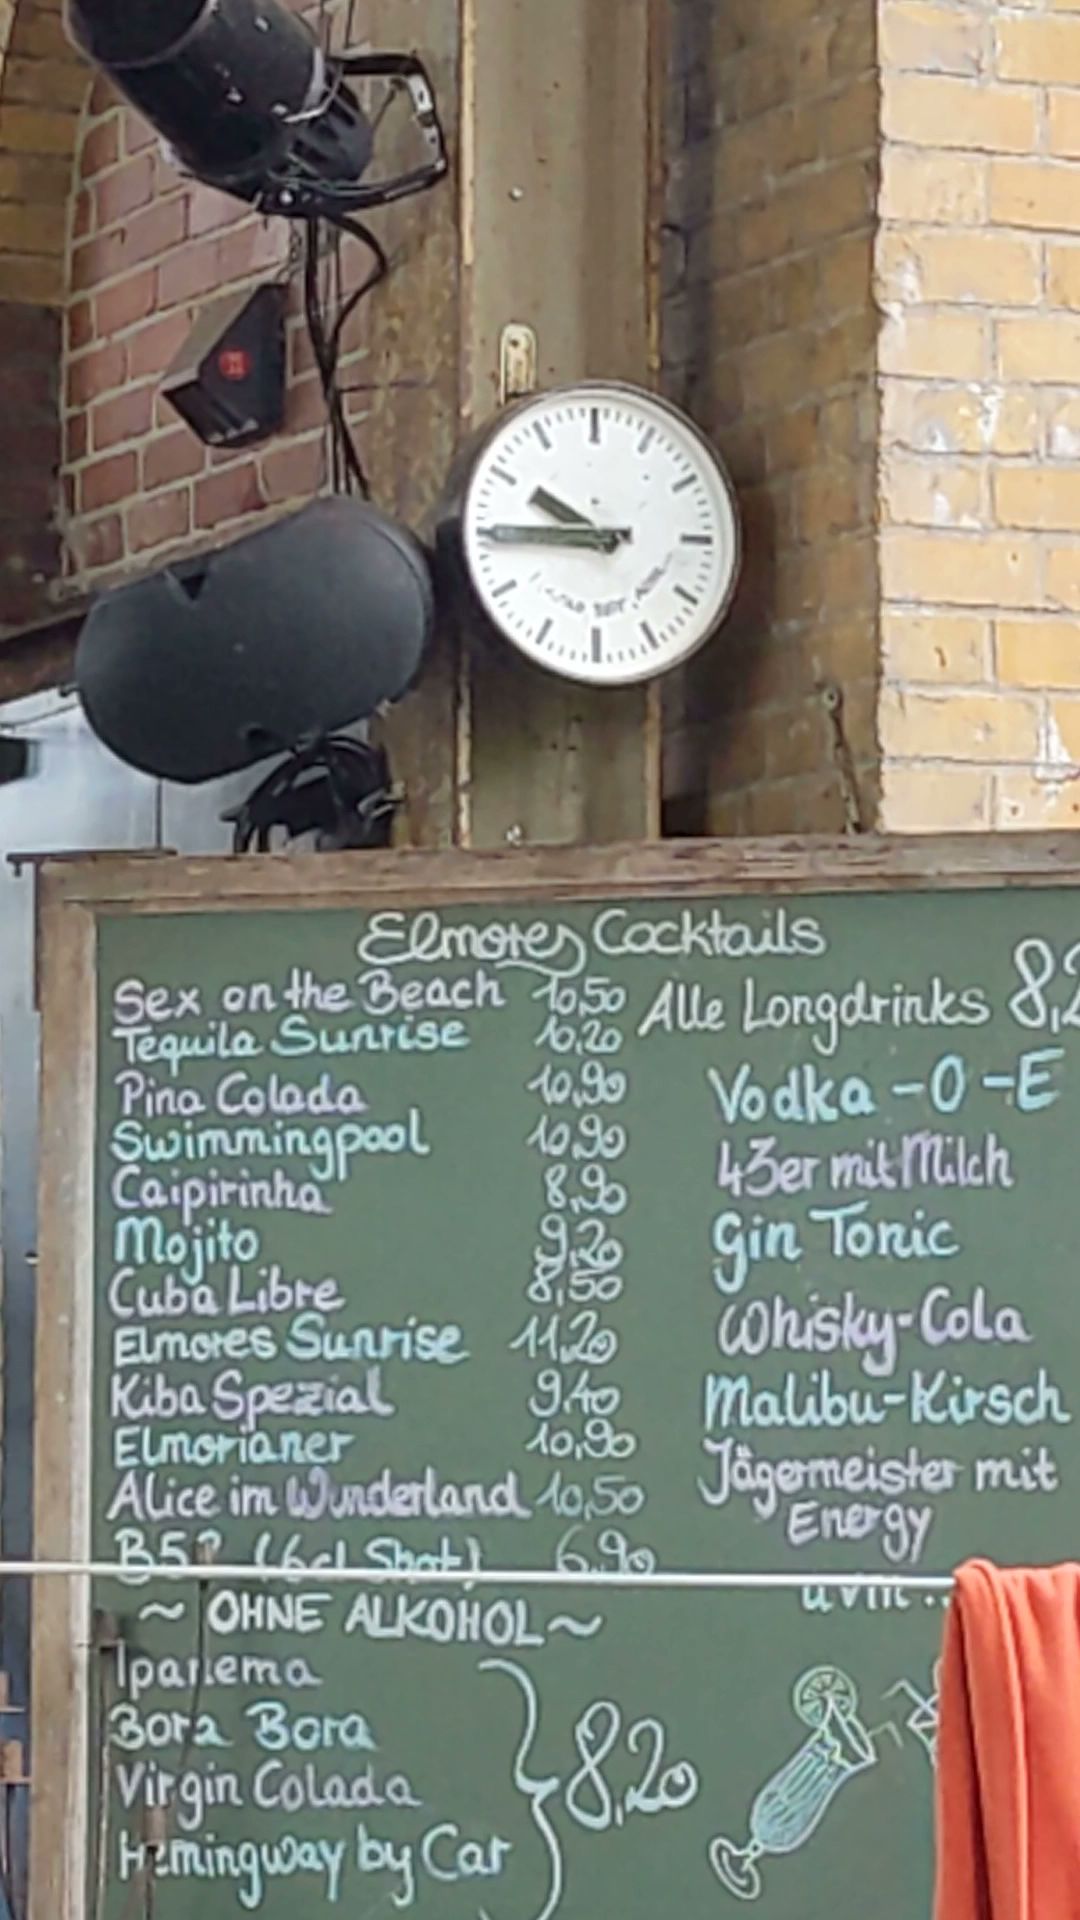 Elmores Cocktails
Sex on the Beach 10,50
Tequila Sunrise 10,20
Pina Colada 10,90
Swimmingpool 10,90
Caipirinha 8,90
Mojito 9,20
Cuba Libre 8,50
Elmores Sunrise 11,20
Kiba Spezial 9,40
Elmorianer 10,90
Alice im Wunderland 10,50
(6cl Shot) 6,90
~ OHNE ALKOHOL ~
Ipanema
Bora Bora
Virgin Colada
Hemingway by Car
8,20
Alle Longdrinks
Vodka-O-E
43er mit Milch
Gin Tonic
Whisky-Cola
Malibu-Kirsch
Jägermeister mit
Energy